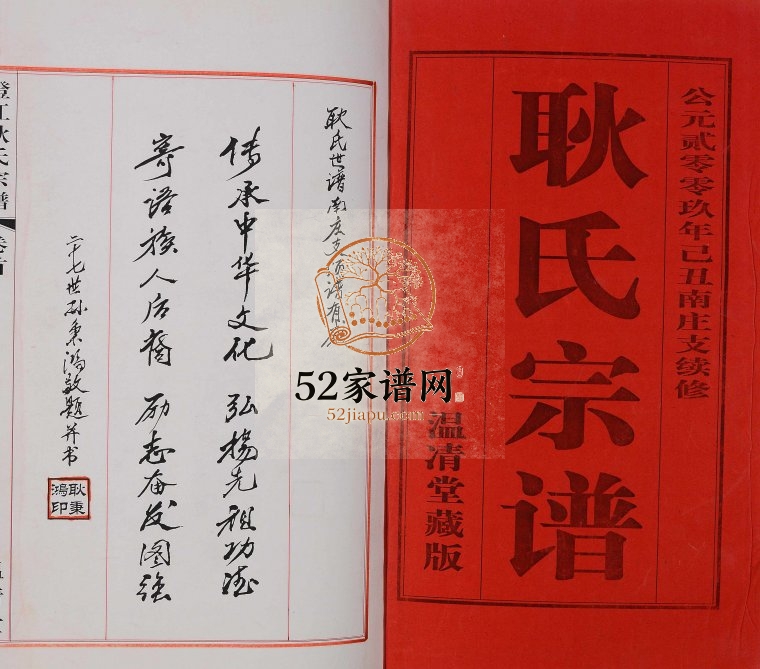 公元贰零零玖年己丑南庄支续修
耿氏宗谱
温清堂藏版
耿氏世谱南庄支
谱有
传承中华文化 弘扬先祖功德
寄语族人后裔 励志奋发图强
二十七世孙秉鸿敬题并书
耿秉鸿印
澄江耿氏宗谱
卷首
52家谱网
52jiapu.com